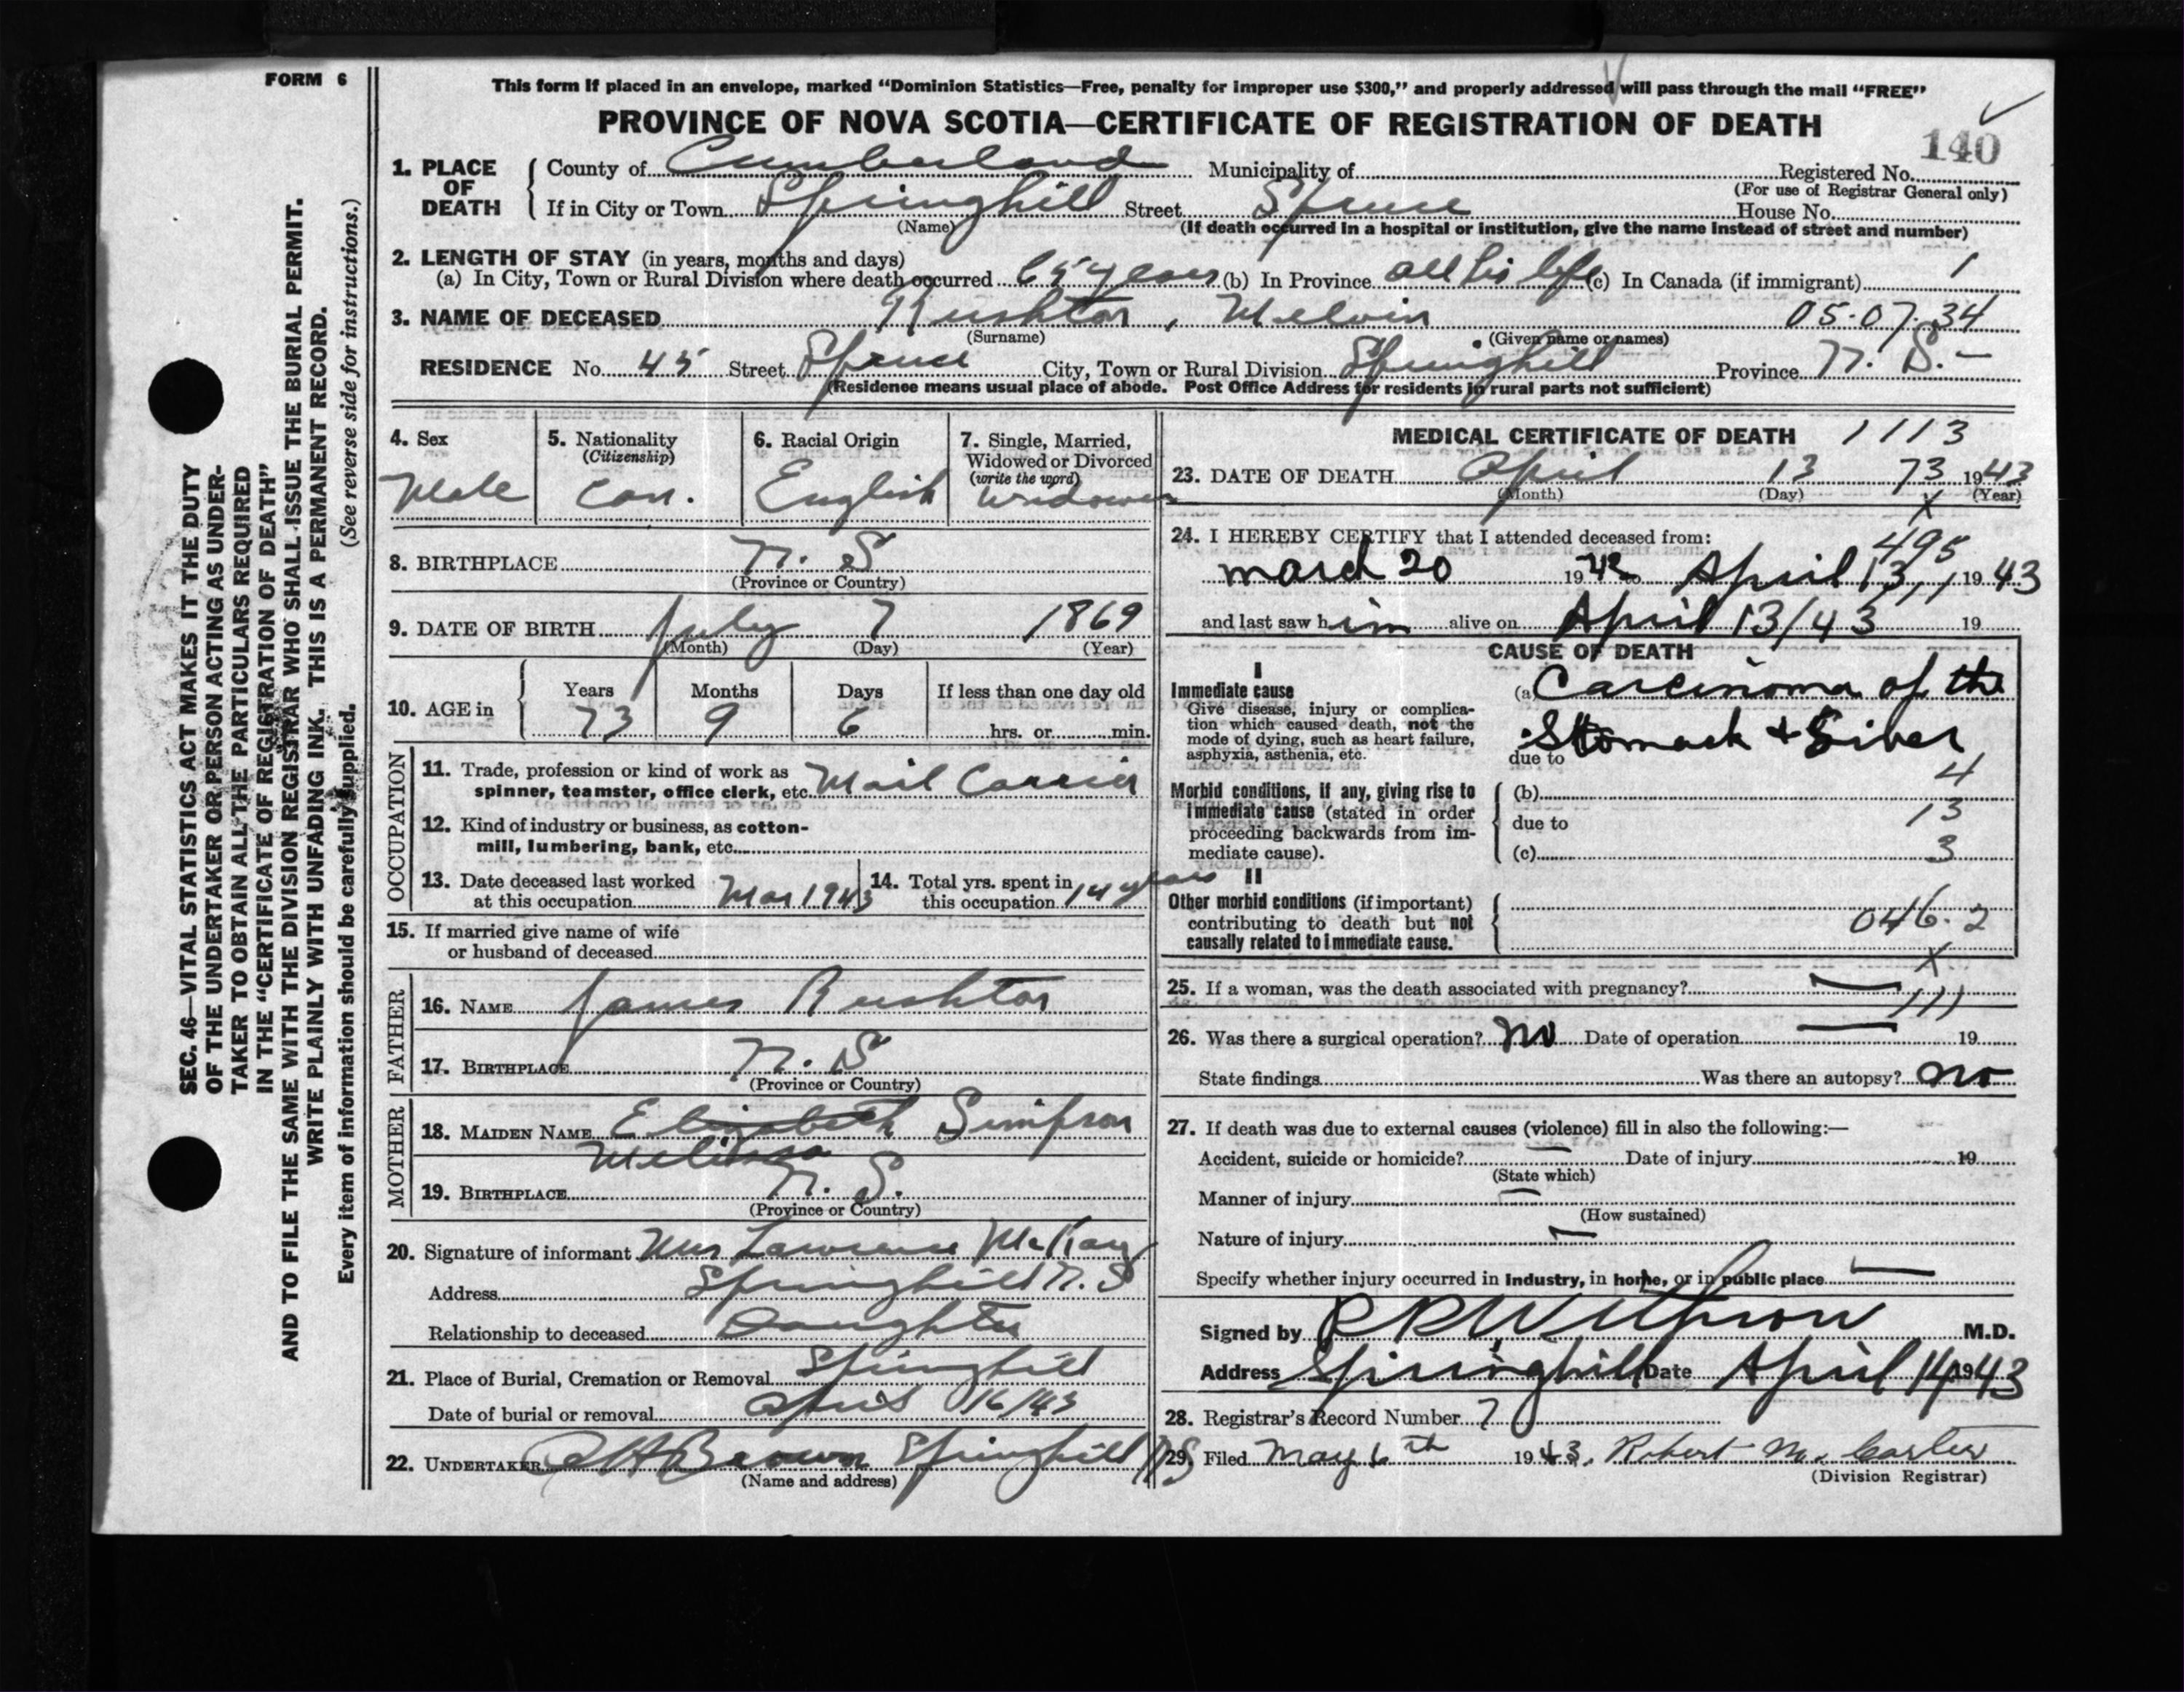 FORM 6
This form if placed in an envelope, marked "Dominion Statistics—Free, penalty for improper use $300," and properly addressed will pass through the mail "FREE"
PROVINCE OF NOVA SCOTIA—CERTIFICATE OF REGISTRATION OF DEATH
140
1. PLACE OF DEATH { County of Cumberland Municipality of Registered No.
(For use of Registrar General only)
If in City or Town Springhill Street Spruce House No.
(Name) (If death occurred in a hospital or institution, give the name instead of street and number)
2. LENGTH OF STAY (in years, months and days)
(a) In City, Town or Rural Division where death occurred 65 years (b) In Province all his life (c) In Canada (if immigrant) 1
3. NAME OF DECEASED Rushton, Melvin 05.07.34
(Surname) (Given name or names)
RESIDENCE No. 45 Street Spruce City, Town or Rural Division Springhill Province N. S.—
(Residence means usual place of abode. Post Office Address for residents in rural parts not sufficient)
4. Sex
Male
5. Nationality
(Citizenship)
Can.
6. Racial Origin
English
7. Single, Married,
Widowed or Divorced
(write the word)
Widower
8. BIRTHPLACE N. S
(Province or Country)
9. DATE OF BIRTH July 7 1869
(Month) (Day) (Year)
10. AGE in { Years Months Days If less than one day old
73 9 6 hrs. or min.
OCCUPATION
11. Trade, profession or kind of work as
spinner, teamster, office clerk, etc. Mail Carrier
12. Kind of industry or business, as cotton-
mill, lumbering, bank, etc.
13. Date deceased last worked
at this occupation Mar 1943
14. Total yrs. spent in
this occupation 14 years
15. If married give name of wife
or husband of deceased
FATHER
16. NAME James Rushton
17. BIRTHPLACE N. S
(Province or Country)
MOTHER
18. MAIDEN NAME Elizabeth Simpson
Melissa
19. BIRTHPLACE N. S.
(Province or Country)
20. Signature of informant Mrs Lawrence McKay
Address Springhill N. S
Relationship to deceased Daughter
21. Place of Burial, Cremation or Removal Springhill
Date of burial or removal April 16/43
22. UNDERTAKER Brown Springhill NS
(Name and address)
MEDICAL CERTIFICATE OF DEATH 1113
23. DATE OF DEATH April 13 73 1943
(Month) (Day) x (Year)
24. I HEREBY CERTIFY that I attended deceased from:
495
March 20 1942 to April 13, 1943
and last saw him alive on April 13/43 19
CAUSE OF DEATH
I
Immediate cause
Give disease, injury or complica-
tion which caused death, not the
mode of dying, such as heart failure,
asphyxia, asthenia, etc.
(a) Carcinoma of the
Stomach + Liver
due to
4
Morbid conditions, if any, giving rise to
immediate cause (stated in order
proceeding backwards from im-
mediate cause).
(b)
due to 13
(c) 3
II
Other morbid conditions (if important)
contributing to death but not
causally related to immediate cause.
046.2
x
25. If a woman, was the death associated with pregnancy? —
111
26. Was there a surgical operation? No Date of operation — 19
State findings Was there an autopsy? No
27. If death was due to external causes (violence) fill in also the following:—
Accident, suicide or homicide? — Date of injury 19
(State which)
Manner of injury —
(How sustained)
Nature of injury —
Specify whether injury occurred in industry, in home, or in public place —
Signed by M.D.
Address Springhill Date April 14 1943
28. Registrar's Record Number 7
29. Filed May 6th 1943. Robert M.
(Division Registrar)
SEC. 46—VITAL STATISTICS ACT MAKES IT THE DUTY
OF THE UNDERTAKER OR PERSON ACTING AS UNDER-
TAKER TO OBTAIN ALL THE PARTICULARS REQUIRED
IN THE "CERTIFICATE OF REGISTRATION OF DEATH"
AND TO FILE THE SAME WITH THE DIVISION REGISTRAR WHO SHALL ISSUE THE BURIAL PERMIT.
WRITE PLAINLY WITH UNFADING INK. THIS IS A PERMANENT RECORD.
Every item of information should be carefully supplied. (See reverse side for instructions.)